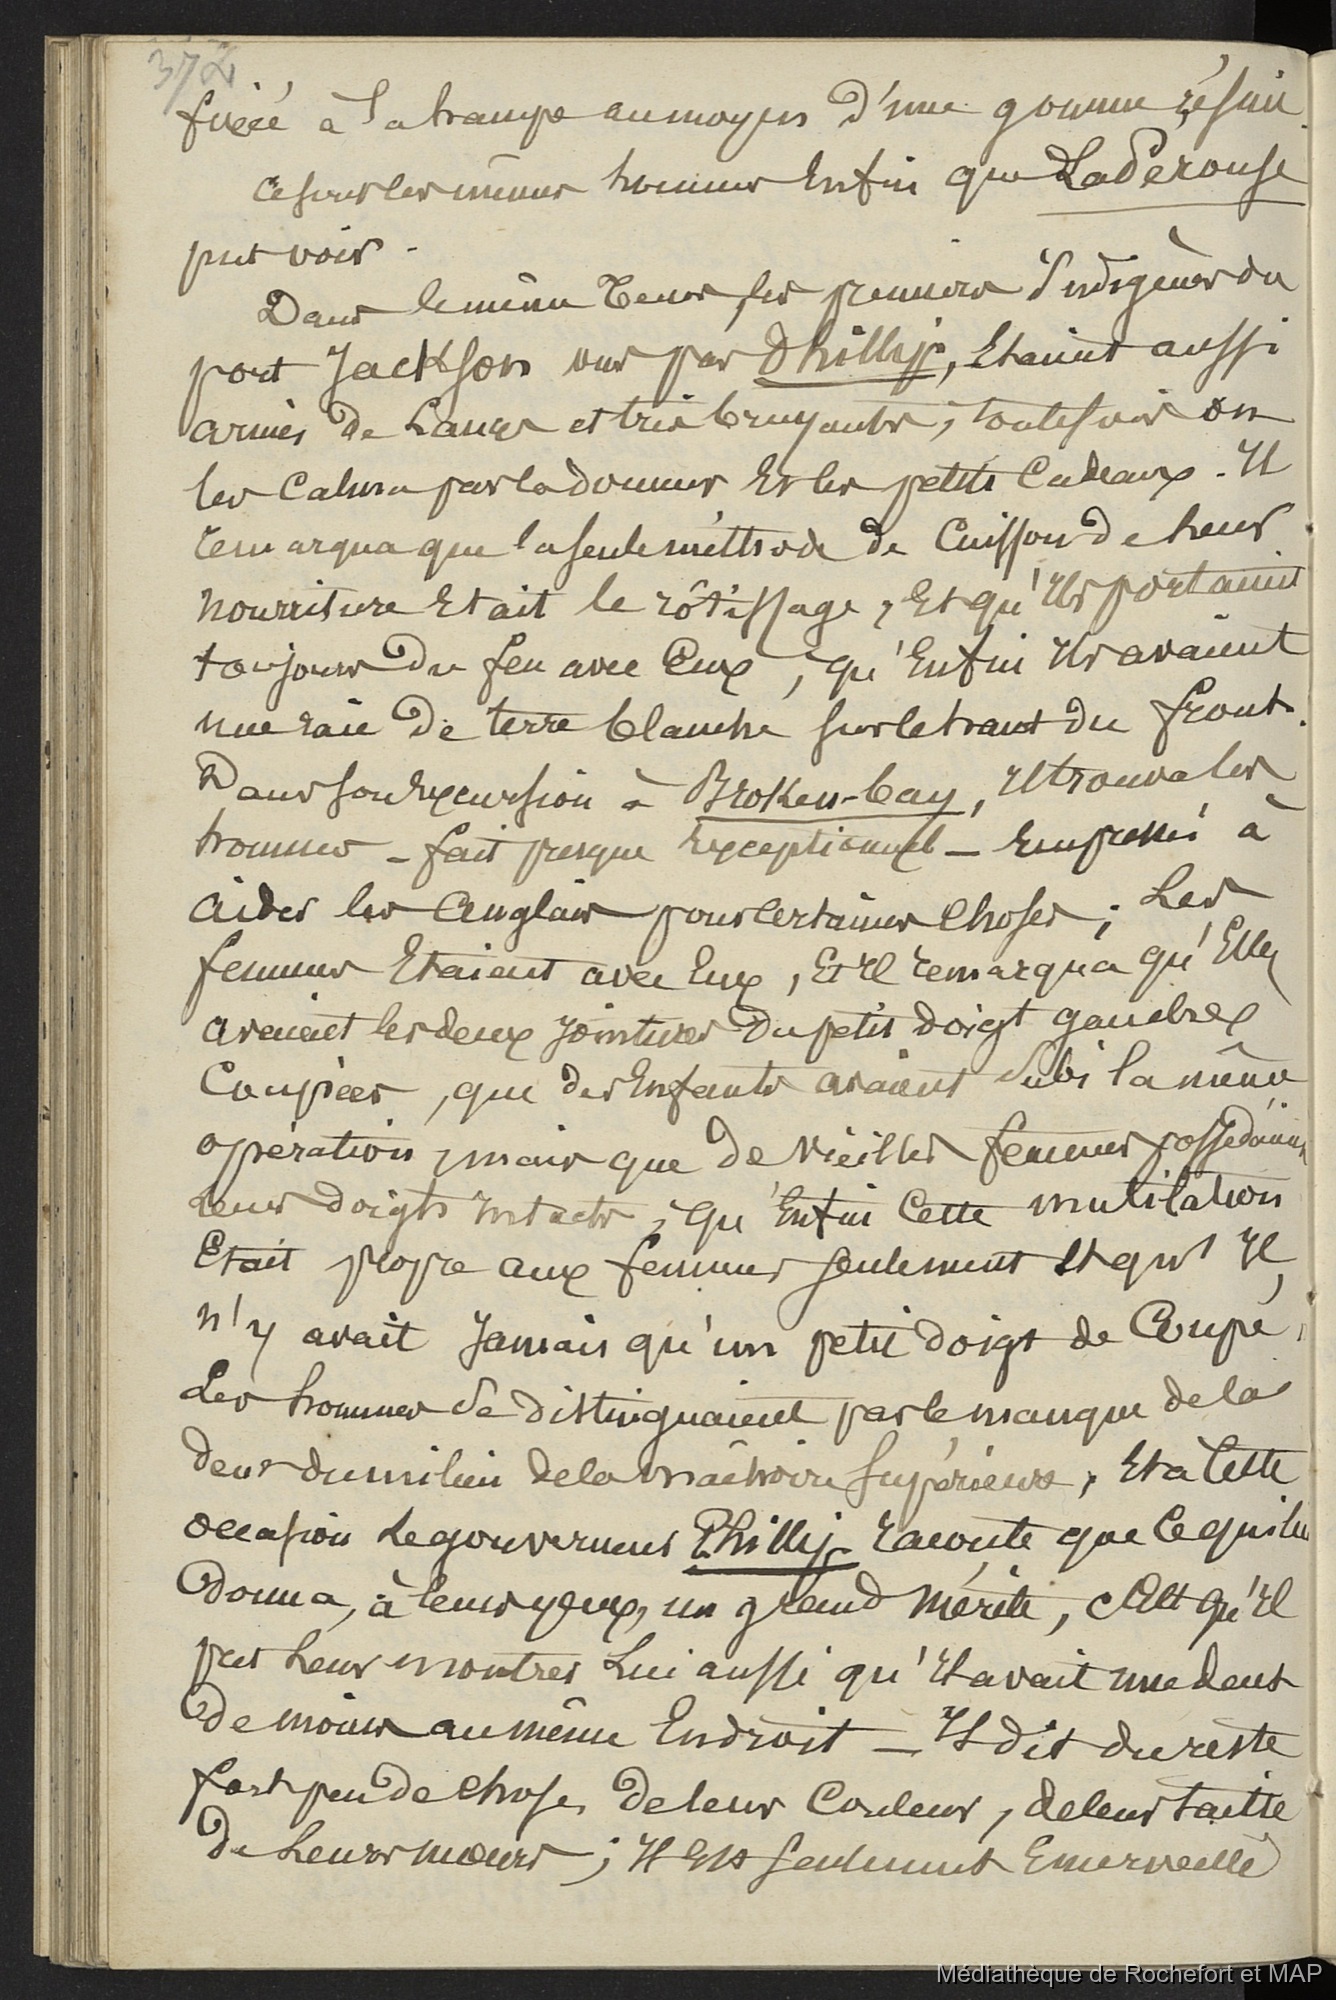 372
fixée à la hampe au moyen d'une gomme résine.
ce sont les mêmes hommes Enfin que LaPérouse
put voir.
Dans le même tems, les premiers Indigènes du
port Jackson vus par Phillip, Etaient aussi
armés de Lances et très bruyants, toutefois on
les Calma par la douceur Et les petits Cadeaux. Il
remarqua que la seule méthode de Cuisson de leur
nourriture Etait le rôtissage, Et qu'Ils portaient
toujours du feu avec Eux, qu'Enfin Ils avaient
une raie de terre blanche sur le haut du front.
Dans son Excursion à Broken-bay, Il trouva les
hommes - fait presque Exceptionnel - Empressés à
aider les Anglais pour certaines Choses; Les
femmes Etaient avec Eux, Et Il remarqua qu'Elles
avaient les deux Jointures du petit doigt gauches
Coupées, que des Enfants avaient subi la même
opération, mais que de vieilles femmes possédaient
leurs doigts Intacts, qu'Enfin Cette mutilation
Etait propre aux femmes seulement Et qu'Il
n'y avait Jamais qu'un petit doigt de Coupé,
Les hommes se distinguaient par le manque de la
dent du milieu de la mâchoire supérieure, Et à Cette
occasion Le gouverneur Phillip raconte que Ce qui lui
donna, à leurs yeux, un grand mérite, C'Est qu'Il
put Leur montrer Lui aussi qu'Il avait une dent
de moins au même Endroit - Il dit du reste
fort peu de Chose de leur Couleur, de leur taille
de Leurs mœurs; Il Est seulement Emerveillé
Médiathèque de Rochefort et MAP